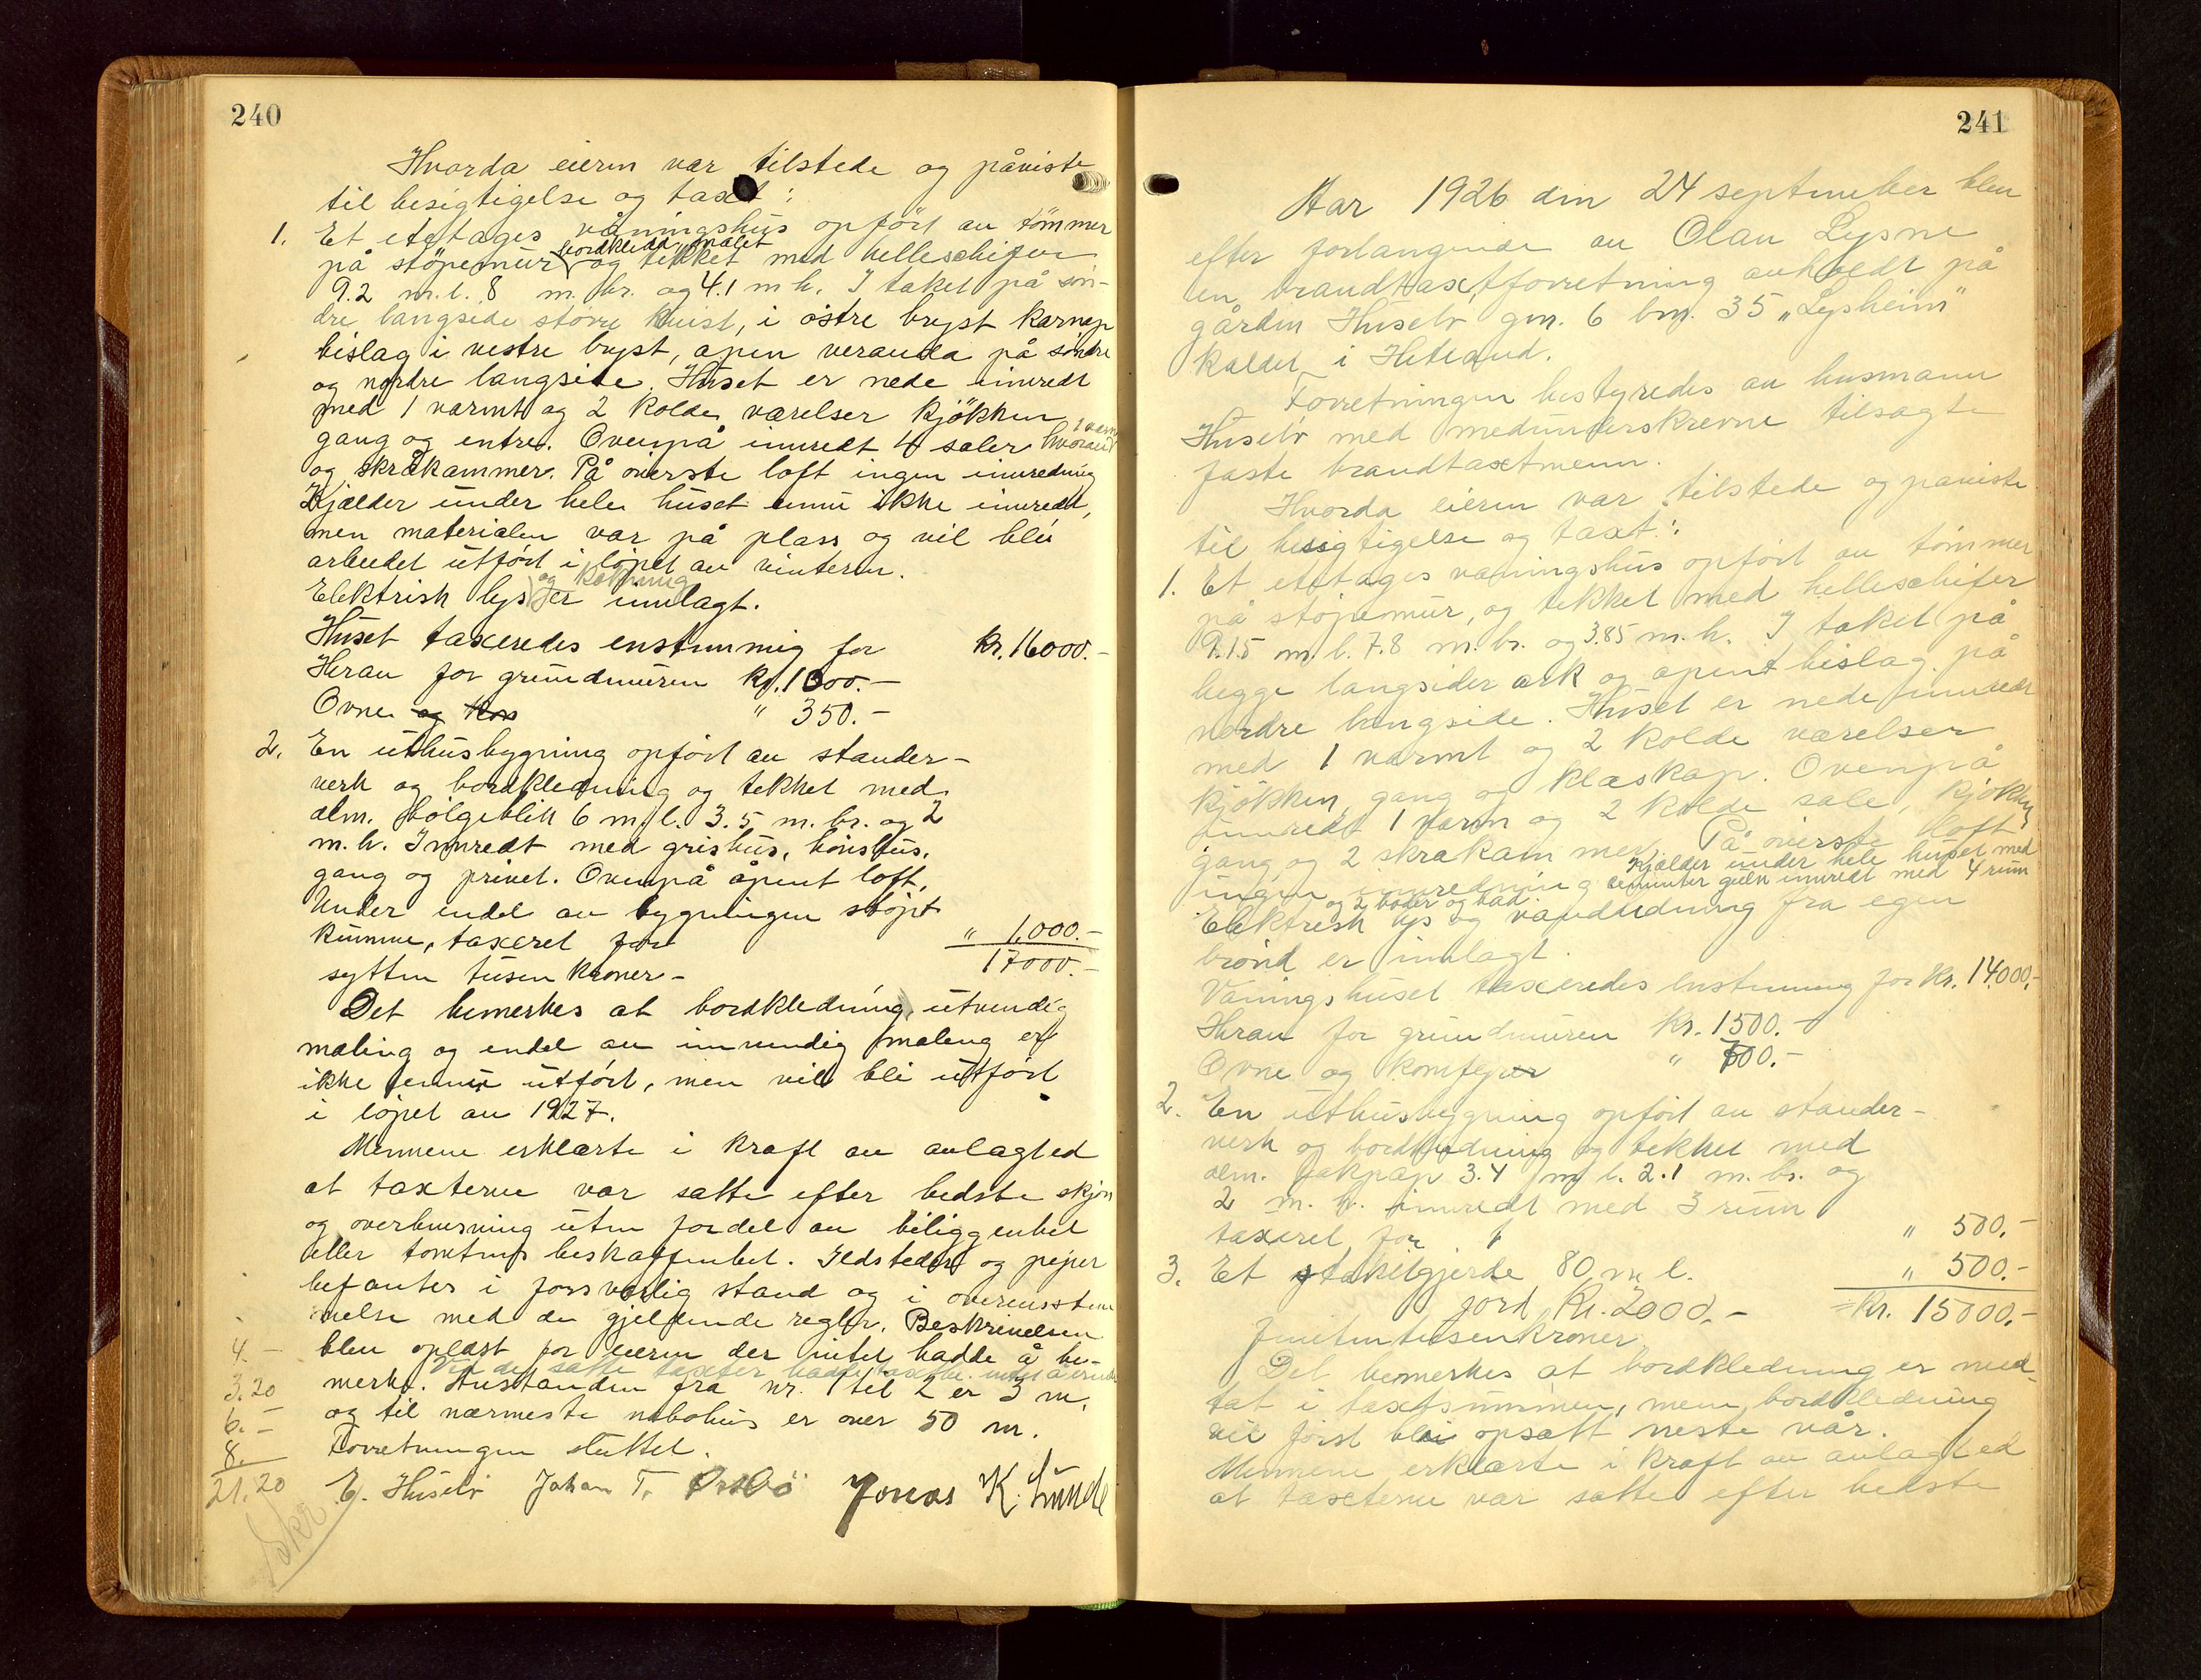 240
Hvorda eieren var tilstede og påviste
til besigtigelse og taxt:
1. Et etetages våningshus opført av tømmer
på støpemur bordkledd malet og tekket med helleschifer
9.2 m.l. 8 m. br. og 4.1 m h. I taket på søn-
dre langside større kvist, i østre bryst karnap
bislag i vestre bryst, åpen veranda på søndre
og nordre langside. Huset er nede innredt
med 1 varmt og 2 kolde værelser kjøkken
gang og entre. Ovenpå innredt 4 saler hvorav 1 varm
og skråkammer. På øverste loft ingen innredning
Kjælder under hele huset ennu ikke innredt,
men materialen var på plass og vil bli
arbeidet utført i løpet av vinteren.
Elektrisk lys og kokning er innlagt.
Huset taxeredes enstemmig for kr. 16000.-
Herav for grundmuren kr. 1000.-
Ovne og kom " 350.-
2. En uthusbygning opført av stander-
verk og bordkledning og tekket med
alm. bølgeblikk 6 m. l. 3.5 m. br. og 2
m. h. Innredt med grishus, hønshus,
gang og privet. Ovenpå åpent loft,
Under endel av bygningen støpt
kumme, taxeret for " 1,000.-
sytten tusen kroner- 17000.-
Det bemerkes at bordkledning, utvendig
maling og endel av innvendig maling er
ikke ennu utført, men vil bli utført
i løpet av 1927.
Mennene erklærte i kraft av avlagt ed
at taxterne var satte efter bedste skjøn
og overbevisning uten fordel av beliggenhet
eller tomtens beskaffenhet. Ildsteder og pejper
befantes i forsvarlig stand og i overensstem
melse med de gjeldende regler. Beskrivelsen
blev oplæst for eieren der intet hadde å be-
Ved de satte taxter hadde
merke. Avstanden fra nr. 1 til 2 er 3 m.
og til nærmeste nabohus er over 50 m.
Forretningen sluttet.
4.-
3.20
6.-
8.
21.20
E. Huselv Johan T. Jonas K. Lunde
241
År 1926 den 24 september blev
efter forlangende av Olav Lysne
en brandtaxtforretning avholdt på
gården Huselv gnr. 6 bnr. 35 „Lysheim"
kaldet i Hetland.
Forretningen bestyredes av husmann
Huselv med medunderskrevne tilsagte
faste brandtaxtmenn.
Hvorda eieren var tilstede og påviste
til besigtigelse og taxt:
1. Et etetages våningshus opført av tømmer
på støpemur, og tekket med helleschifer
9.15 m. l. 7.8 m. br. og 3.85 m. h. I taket på
begge langsider ark og åpent bislag på
nordre langside. Huset er nede innredt
med 1 varmt og 2 kolde værelser
kjøkken, gang og klæskap. Ovenpå
innredt 1 varm og 2 kolde sale, kjøkken
gang og 2 skråkammer. På øverste loft
ingen innredning Kjælder under hele huset med
cementer gulv innredt med 4 rum
og 2 boder og bad.
Elektrisk lys og vandledning fra egen
brønd er innlagt.
Våningshuset taxeredes enstemmig for kr. 14,000.-
Herav for grundmuren kr. 1500.-
Ovne og komfyrer " 700.-
2. En uthusbygning opført av stander-
verk og bordkledning og tekket med
alm. takpap 3.4 m l. 2.1 m. br. og
2 m. h. innredt med 3 rum
taxeret for " 500.-
3. Et stakitgjerde 80 m l. " 500.-
jord kr. 2000.- = kr. 15000.-
femtentusenkroner
Det bemerkes at bordkledning er med-
tat i taxtsummen, men bordkledning
vil først bli opsatt neste vår.
Mennene erklærte i kraft av avlagt ed
at taxterne var satte efter bedste